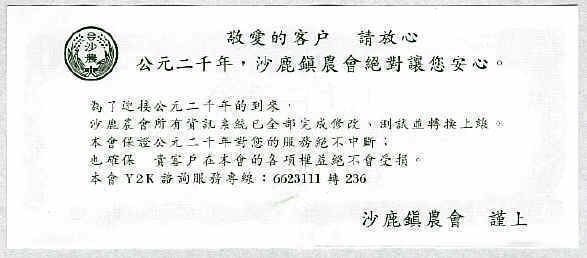 敬愛的客戶　請放心
公元二千年，沙鹿鎮農會絕對讓您安心。
為了迎接公元二千年的到來，
沙鹿農會所有資訊系統已全部完成修改、測試並轉換上線。
本會保證公元二千年對您的服務絕不中斷；
也確保　貴客戶在本會的各項權益絕不會受損。
本會Y2K諮詢服務專線：6623111 轉 236
沙鹿鎮農會　謹上